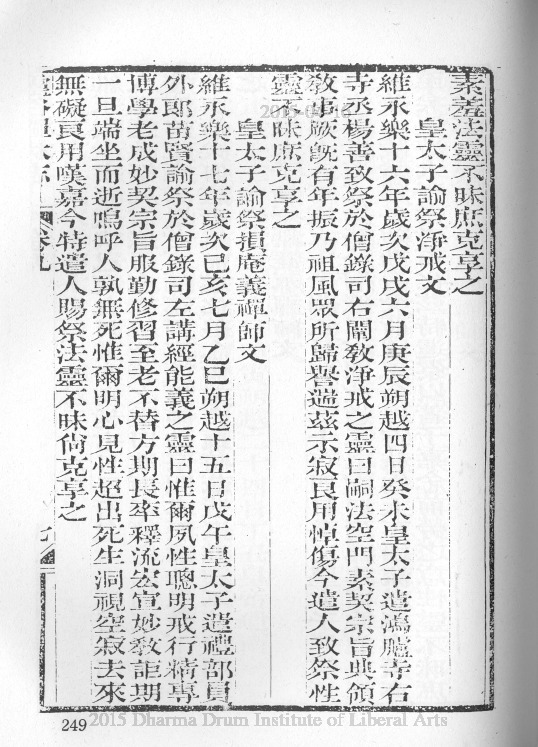 素羞法靈不昧庶克享之
皇太子諭祭淨戒文
維永樂十六年歲次戊戌六月庚辰朔越四日癸未皇太子遣鴻臚寺右
寺丞楊善致祭於僧錄司右闡教淨戒之靈曰嗣法空門素契宗旨典領
教事厥旣有年振乃祖風眾所歸譽遄茲示寂良用悼傷今遣人致祭性
靈不昧庶克享之
皇太子諭祭損庵義禪師文
維永樂十七年歲次己亥七月乙巳朔越十五日戊午皇太子遣禮部員
外郎苗賢諭祭於僧錄司左講經能義之靈曰惟爾夙性聰明戒行精專
博學老成妙契宗旨服勤修習至老不替方期長率釋流宏宣妙敎詎期
一旦端坐而逝嗚呼人孰無死惟爾明心見性超出死生洞視空寂去來
無礙良用嘆嘉今特遣人賜祭法靈不昧尙克享之
卷九
七
249
2015 Dharma Drum Institute of Liberal Arts